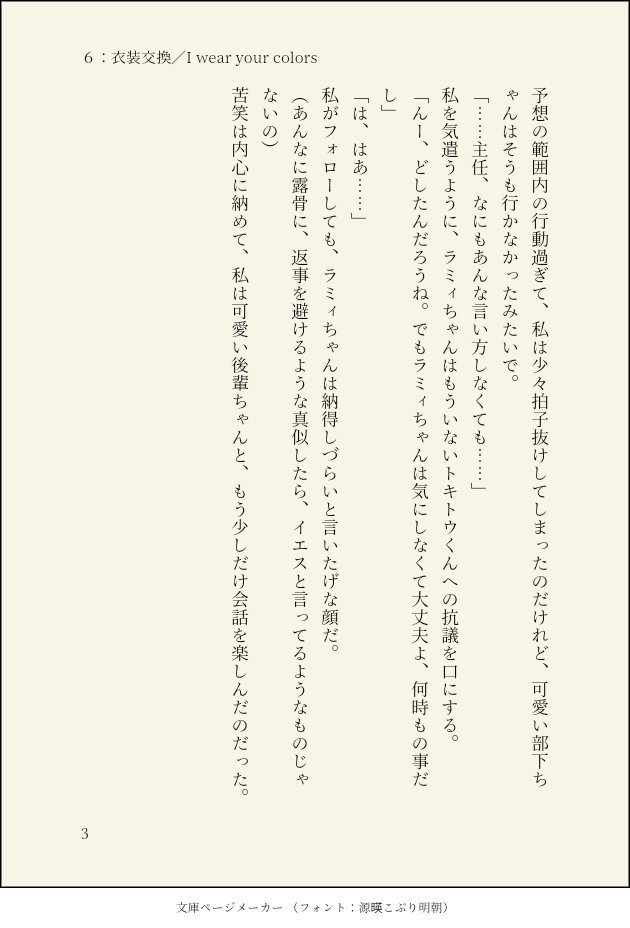 6：衣装交換／I wear your colors
予想の範囲内の行動過ぎて、私は少々拍子抜けしてしまったのだけれど、可愛い部下ち
ゃんはそうも行かなかったみたいで。
「……主任、なにもあんな言い方しなくても……」
私を気遣うように、ラミィちゃんはもういないトキトウくんへの抗議を口にする。
「んー、どしたんだろうね。でもラミィちゃんは気にしなくて大丈夫よ、何時もの事だ
し」
「は、はあ……」
私がフォローしても、ラミィちゃんは納得しづらいと言いたげな顔だ。
（あんなに露骨に、返事を避けるような真似したら、イエスと言ってるようなものじゃ
ないの）
苦笑は内心に納めて、私は可愛い後輩ちゃんと、もう少しだけ会話を楽しんだのだった。
3
文庫ページメーカー （フォント：源暎こぶり明朝）